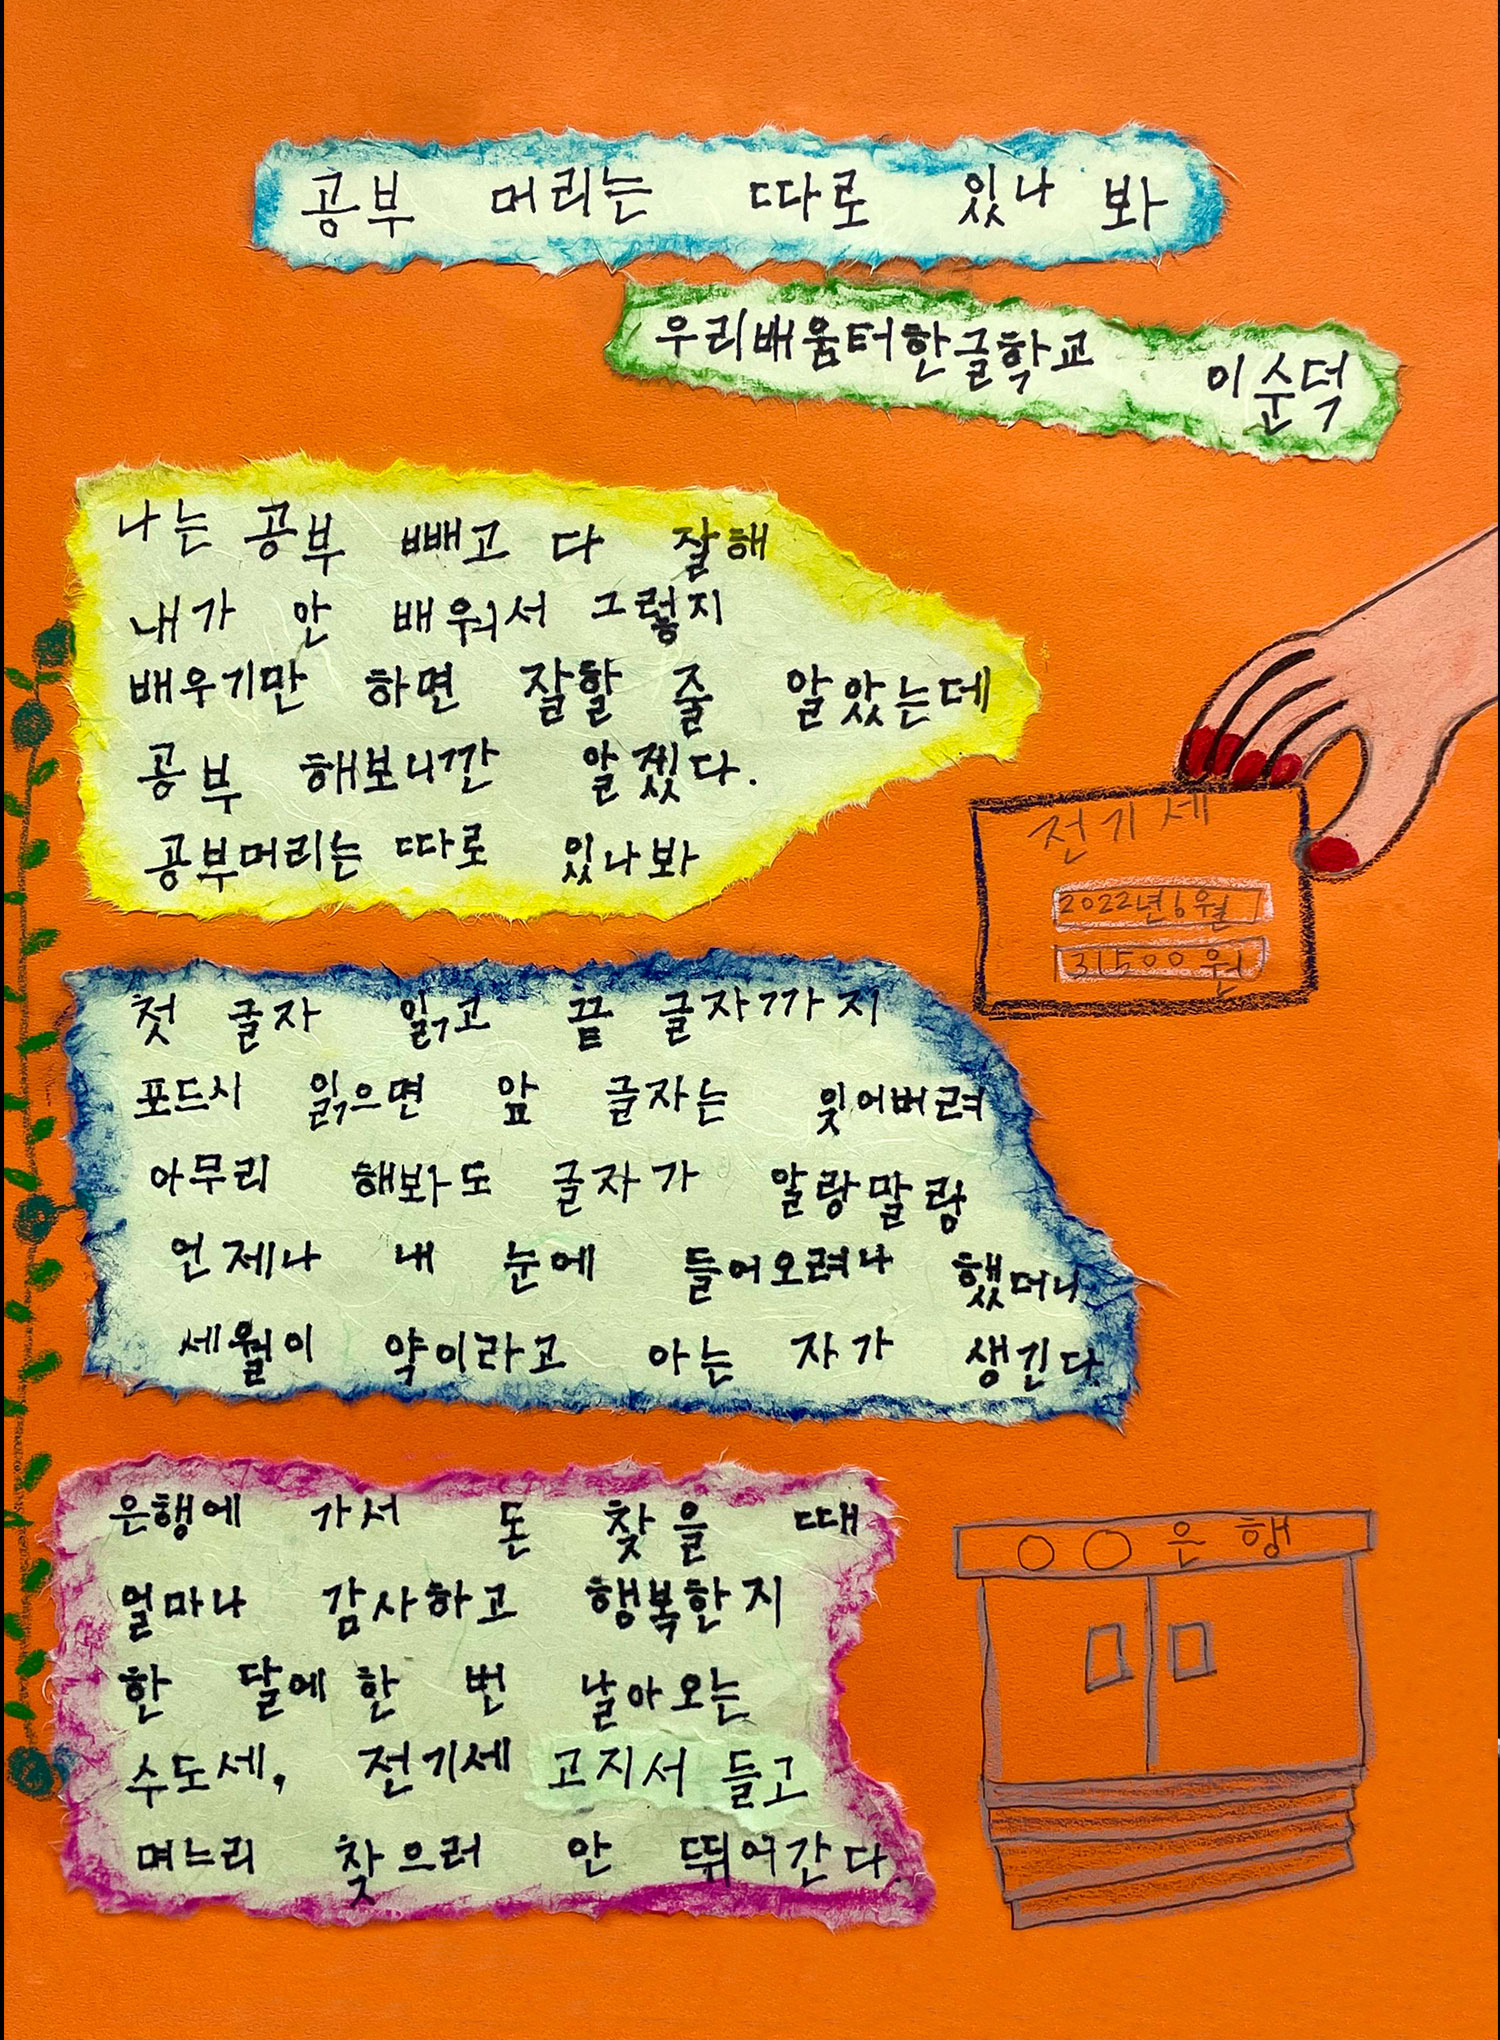 공부 머리는 따로 있나 봐
우리배움터한글학교 이순덕
나는 공부 빼고 다 잘해
내가 안 배워서 그렇지
배우기만 하면 잘할 줄 알았는데
공부 해보니깐 알겠다.
공부머리는 따로 있나봐
첫 글자 읽고 끝 글자까지
포드시 읽으면 앞 글자는 잊어버려
아무리 해봐도 글자가 알랑말랑
언제나 내 눈에 들어오려나 했더니
세월이 약이라고 아는 자가 생긴다.
은행에 가서 돈 찾을 때
얼마나 감사하고 행복한지
한 달에 한 번 날아오는
수도세, 전기세 고지서 들고
며느리 찾으러 안 뛰어간다.
전기세
2022년6월
31500원
○○은행